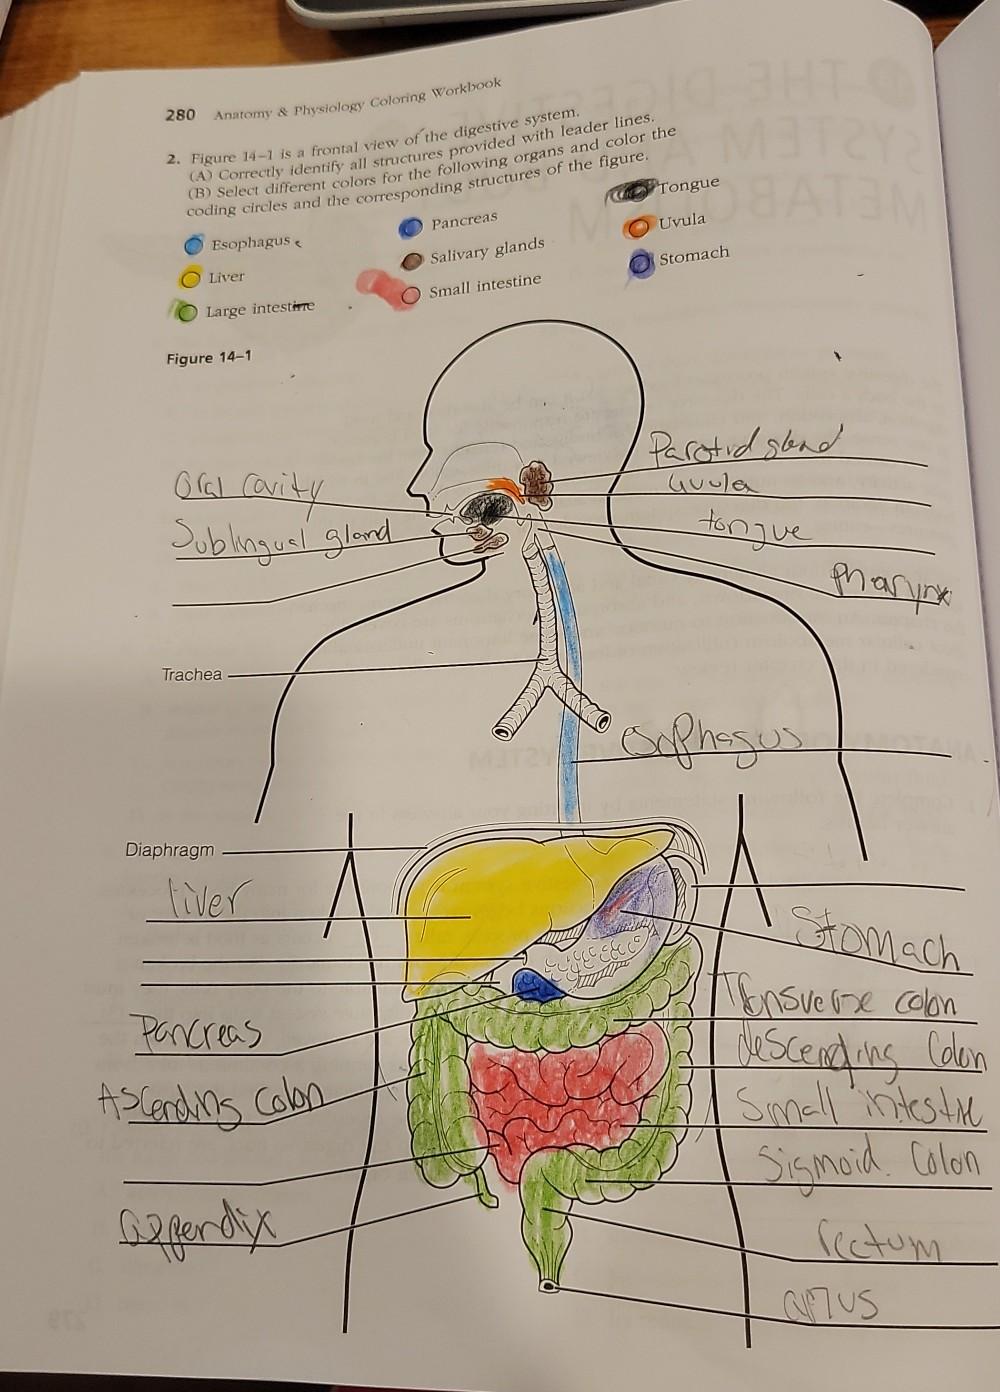 280 Anatomy & Physiology Coloring Workbook
2. Figure 14–1 is a frontal view of the digestive system.
(A) Correctly identify all structures provided with leader lines.
(B) Select different colors for the following organs and color the
coding circles and the corresponding structures of the figure.
Esophagus
Pancreas
Tongue
Liver
Salivary glands
Uvula
Large intestine
Small intestine
Stomach
Figure 14–1
Parotid gland
Oral cavity
uvula
Sublingual gland
tongue
Pharynx
Trachea
esophagus
Diaphragm
liver
Stomach
Pancreas
Transverse colon
descending Colon
Ascending Colon
Small intestine
Sigmoid. Colon
appendix
rectum
anus